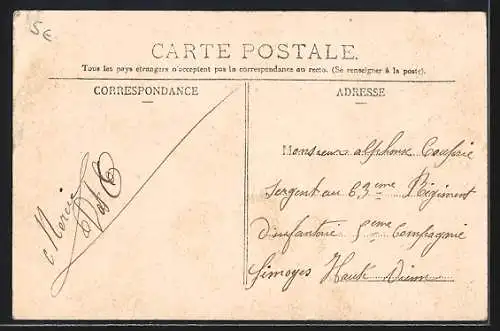 5€
CARTE POSTALE.
Tous les pays étrangers n'acceptent pas la correspondance au recto. (Se renseigner à la poste).
CORRESPONDANCE
ADRESSE
Merci
Monsieur alphonse
sergent au 63ème Régiment
d'infanterie 5eme Compagnie
Limoges Haute Vienne